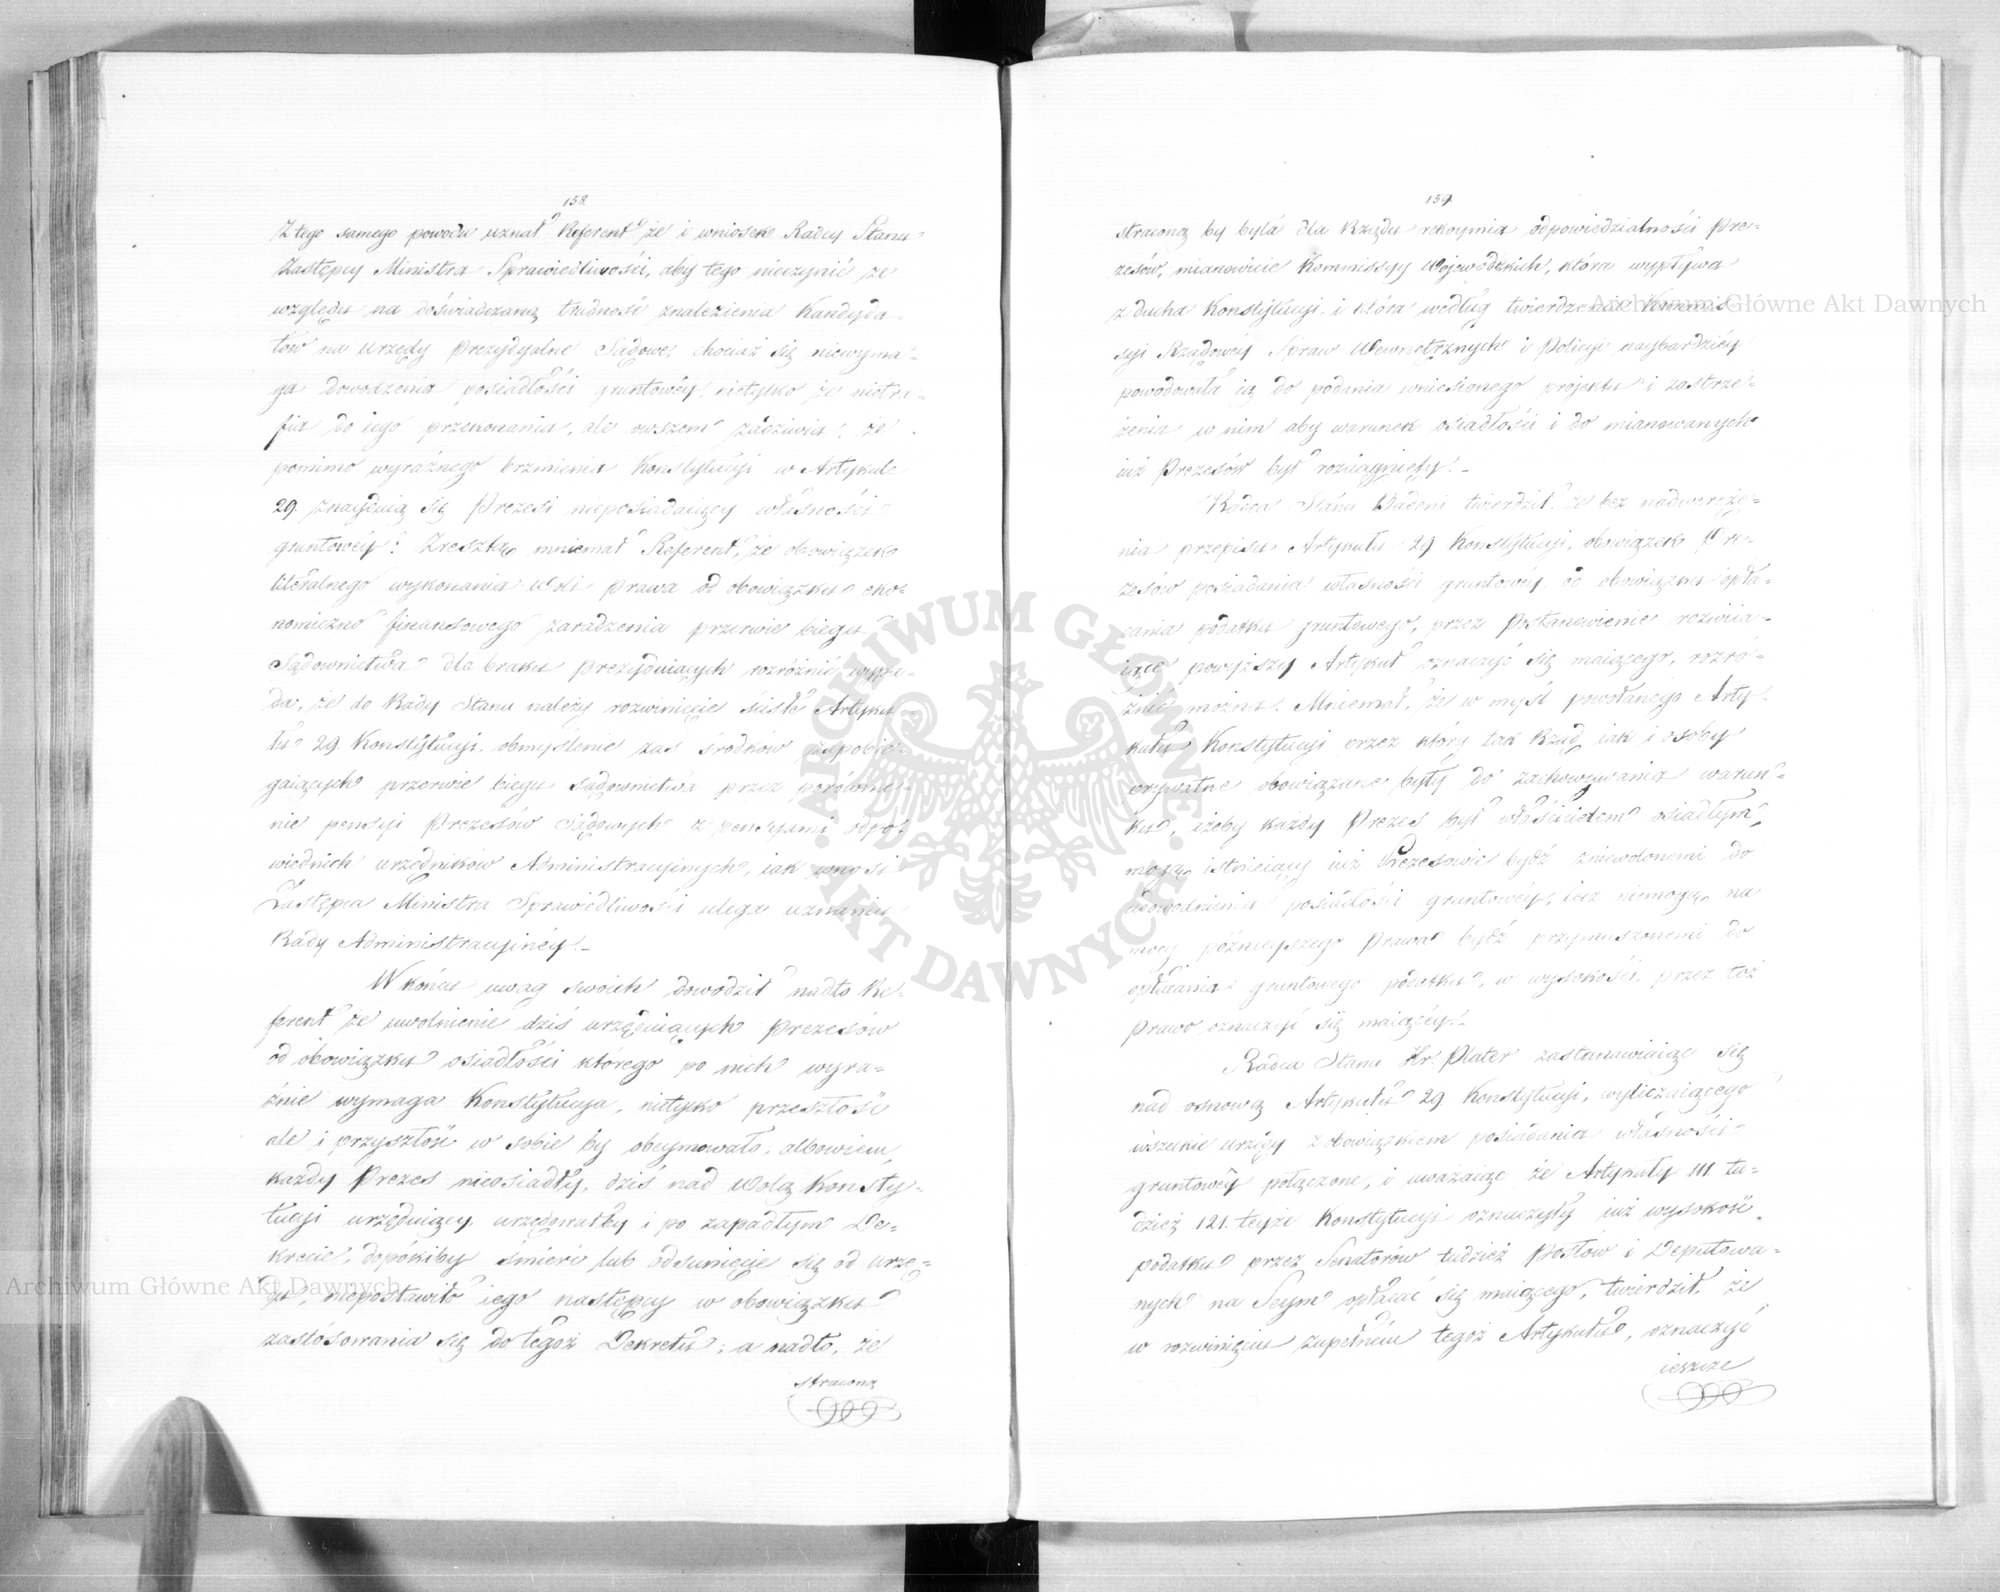 158
Z tego samego powodu uznał Referent że i wniosek Radcy Stanu
Zastępcy Ministra Sprawiedliwości, aby tego nieczynić ze
względu na doświadczaną trudność znalezienia Kandyda-
tów na urzędy Prezydyalne Sądowe, chociaż się niewyma-
ga dowodzenia posiadłości gruntowéy, nietylko że nietra-
fia do iego przekonania, ale owszem zadziwia, że
pomimo wyraźnego brzmienia Konstytucyi w Artykule
29. znayduią się Prezesi nieposiadaiący własności
gruntowéy: Zresztą mniemał Referent, że obowiązek
literalnego wykonania woli prawa od obowiązku eko-
nomiczno finansowego zaradzenia przerwie biegu
Sądownictwa dla braku prezyduiących rozróżnić wypa-
da, że do Rady Stanu należy rozwinięcie ścisłe Artyku-
łu 29. Konstytucyi, obmyślenie zaś środków zapobie-
gaiących przerwie biegu sądownictwa przez porówna-
nie pensyi Prezesów Sądowych z pensyami odpo-
wiednich urzędników Administracyinych, iak wnosi
Zastępca Ministra Sprawiedliwości ulega uznaniu
Rady Administracyinéy.-
W końcu uwag swoich dowodził nadto Re-
ferent że uwolnienie dziś urzęduiących Prezesów
od obowiązku osiadłości którego po nich wyra-
źnie wymaga Konstytucya, nietylko przeszłość
ale i przyszłość w sobie by obeymowało, albowiem
każdy Prezes nieosiadły, dziś nad wolą Konsty-
tucyi urzęduiący, urzędowałby i po zapadłym De-
krecie, dopókiby śmierć lub odsunięcie się od urzę-
du, niepostawiło iego następcy w obowiązku
zastósowania się do tegoż Dekretu; a nadto, że
straconą
159
straconą by była dla Rządu rękoymia odpowiedzialności Pre-
zesów, mianowicie Kommissyy Woiewódzkich, która wypływa
z ducha Konstytucyi, i która według twierdzenia Kommis-
syi Rządowey Spraw Wewnętrznych i Policyi naybardziéy
powodowała ią do podania wniesionego proiektu i zastrze-
żenia w nim aby warunek osiadłości i do mianowanych
iuż Prezesów był rozciągnięty.-
Radca Stanu Badeni twierdził, że bez nadweręże-
nia przepisu Artykułu 29 Konstytucyi, obowiązek Pre-
zesów posiadania własności gruntowéy od obowiązku opła-
cania podatku gruntowego, przez Postanowienie rozwiia-
iące powyższy Artykuł oznaczyć się maiącego, rozró-
żnić można. Mniemał, że w myśl powołanego Arty-
kułu Konstytucyi przez który tak Rząd iak i osoby
prywatne obowiązane były do zachowywania warun-
ku, iżeby każdy Prezes był właścicielem osiadłym,
mogą istnieiący iuż Prezesowie bydź zniewolonemi do
udowodnienia posiadłości gruntowéy, lecz niemogą na
mocy późnieyszego Prawa bydź przymuszonemi do
opłacania gruntowego podatku, w wysokości, przez toż
prawo oznaczyć się maiącéy.-
Radca Stanu Hr. Plater zastanawiaiąc się
nad osnową Artykułu 29 Konstytucyi, wyliczaiącego
wszelkie urzędy z obowiązkiem posiadania własności
gruntowéy połączone, i uważaiąc że Artykuły 111 tu-
dzież 121. teyże Konstytucyi oznaczyły iuż wysokość
podatku przez Senatorów tudzież Posłow i Deputowa-
nych na Seym opłacać się maiącego, twierdził, że
w rozwinięciu zupełném tegoż Artykułu, oznaczyć
ieszcze
ARCHIWUM GŁÓWNE AKT DAWNYCH
Archiwum Główne Akt Dawnych
Archiwum Główne Akt Dawnych